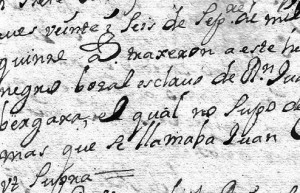 ues veinte y seis de sep.e de mil
quinze D. traxeron a este h
negro bozal esclavo de Dn Jua
bergara, el qual no supo d
mas que se llamaba Juan
ut supra